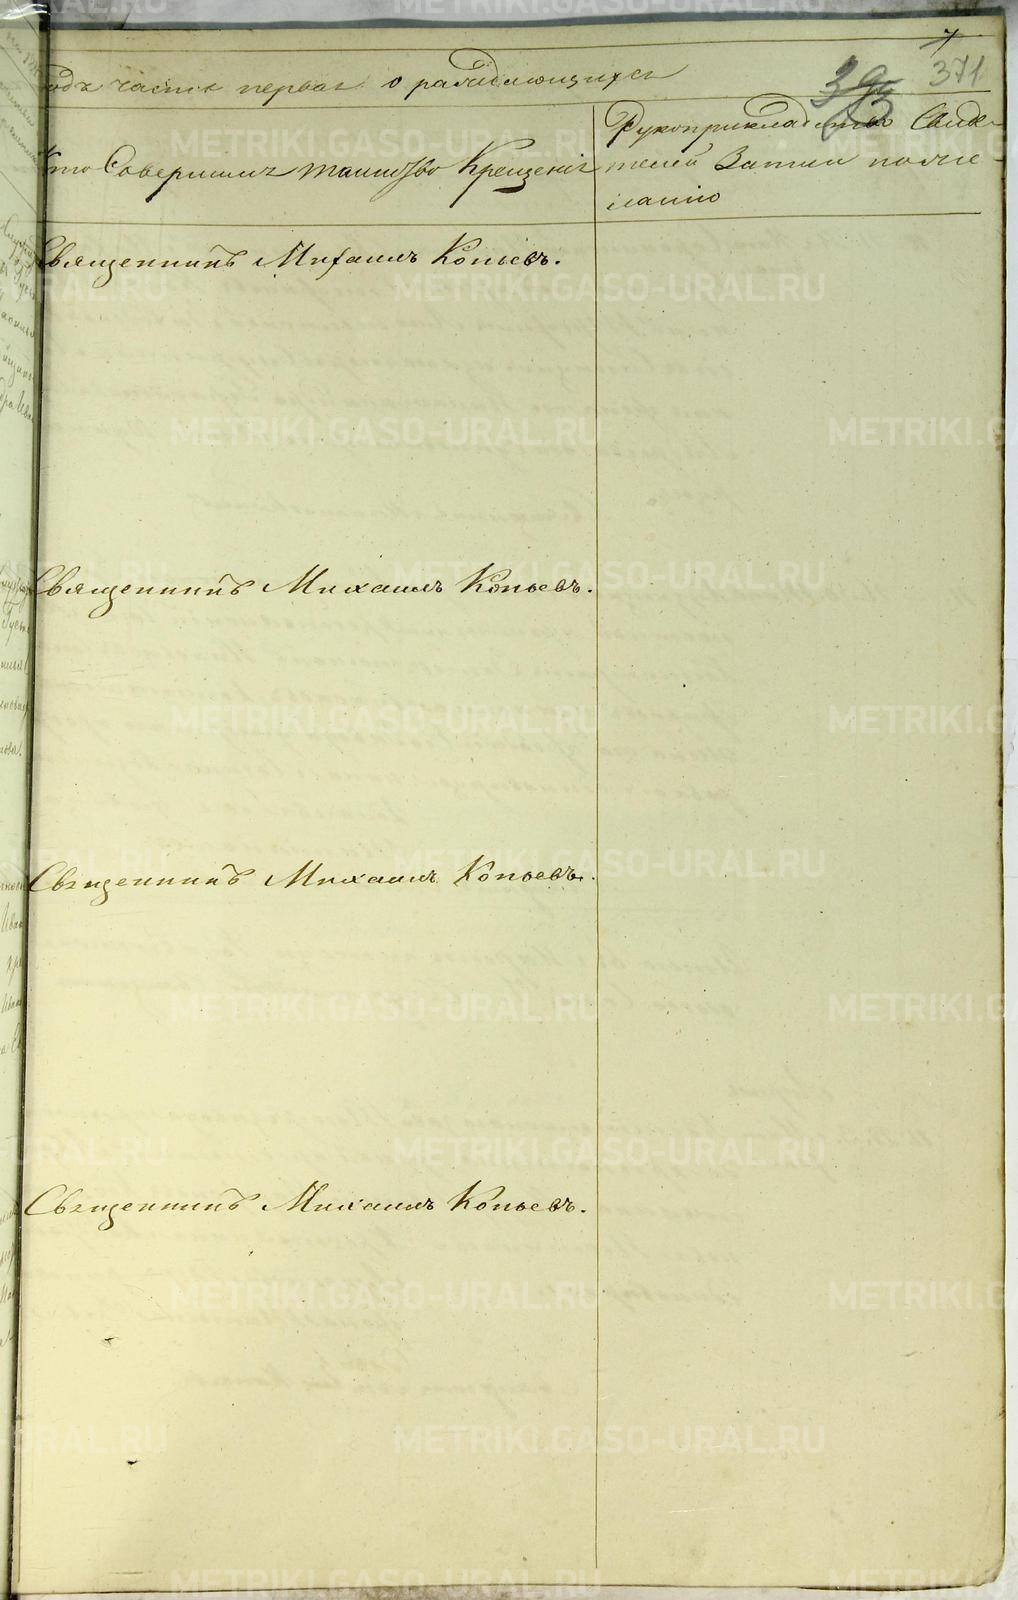 7
393 371
годъ часть первая о раждающихся
Кто Совершилъ таинство Крещенія
Рукоприкладство Свидѣ-
телей Записи по же-
ланію
Священникъ Михаилъ Копьевъ.
Священникъ Михаилъ Копьевъ.
Священникъ Михаилъ Копьевъ.
Священникъ Михаилъ Копьевъ.
METRIKI.GASO-URAL.RU